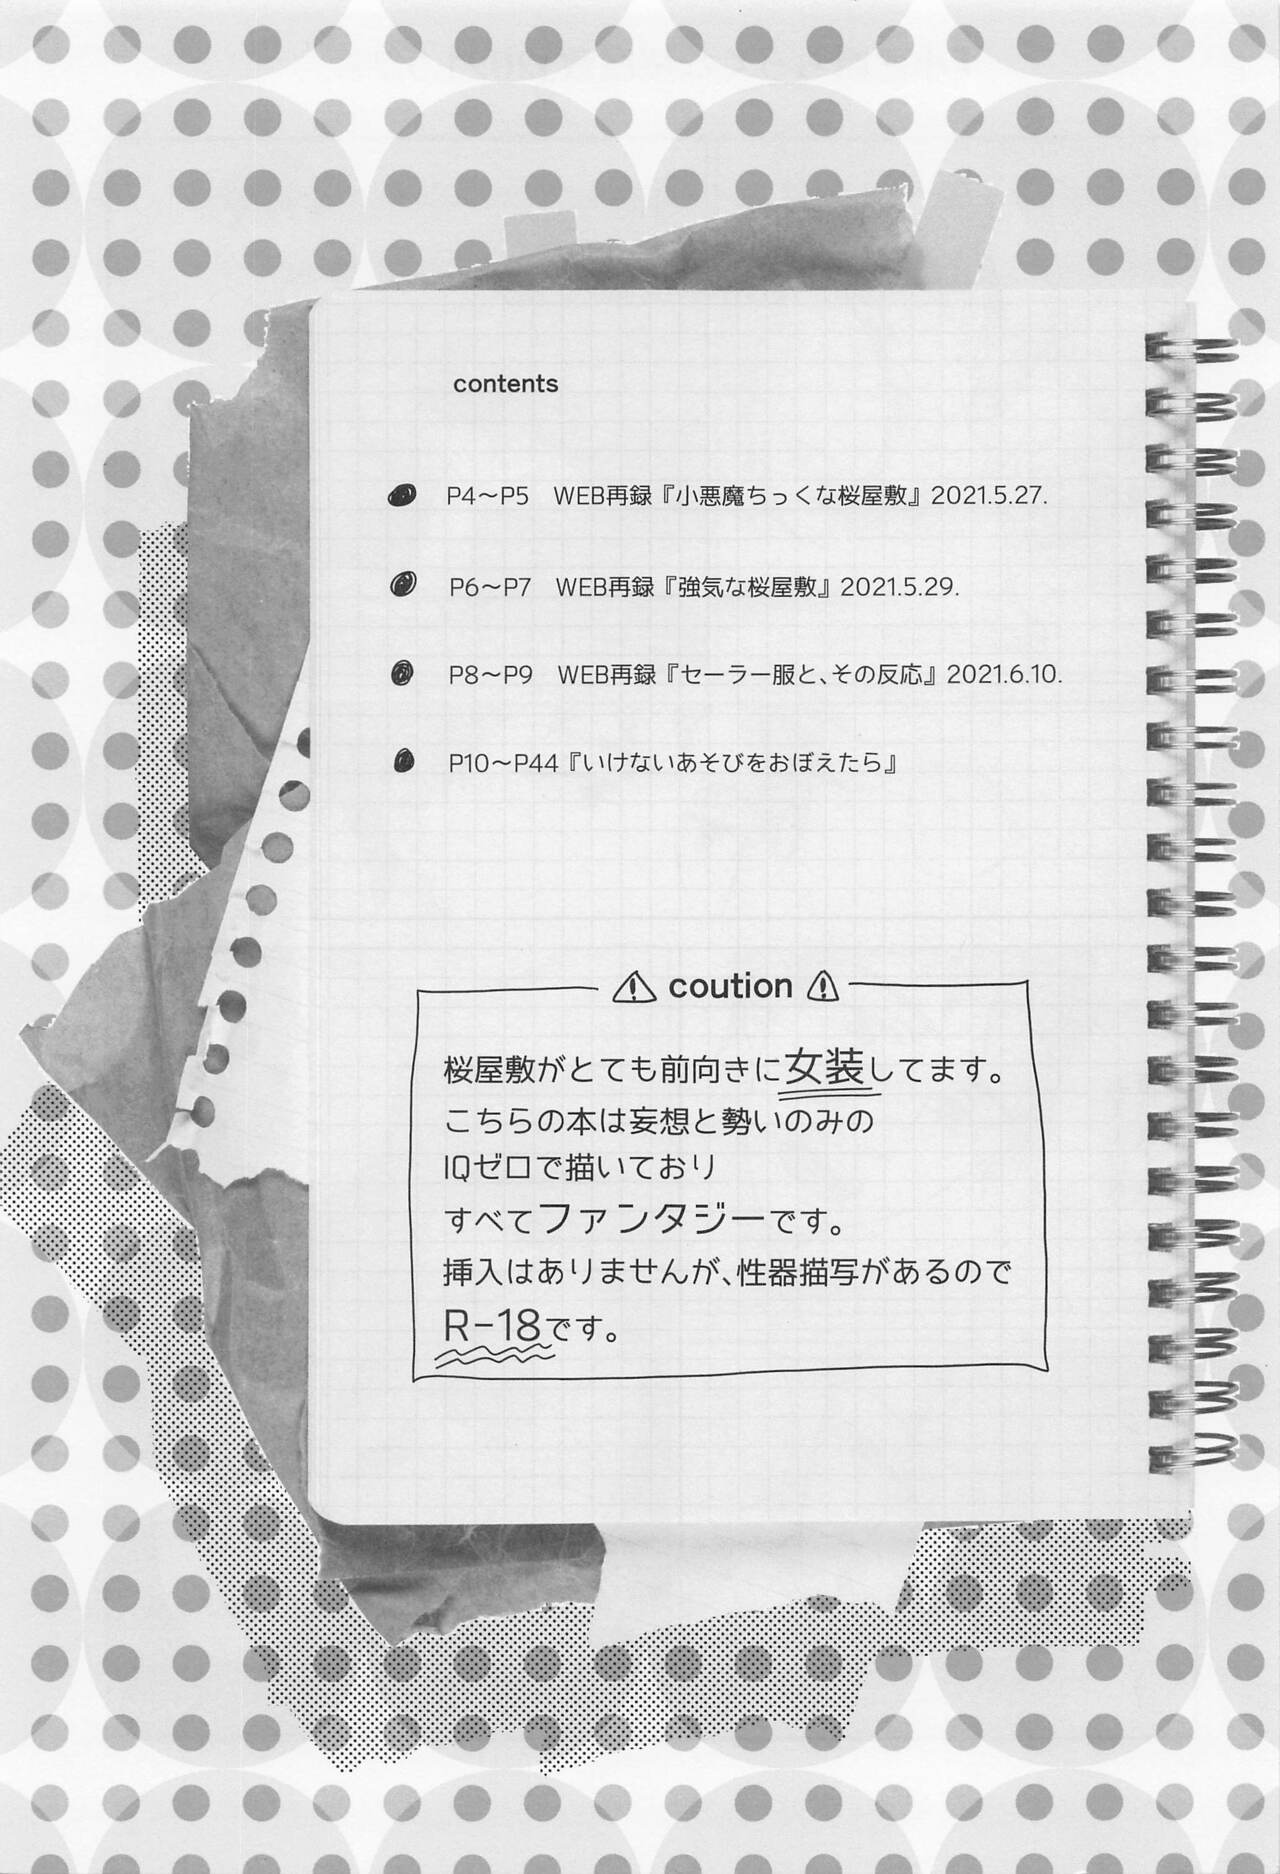 contents
P4～P5　WEB再録『小悪魔ちっくな桜屋敷』2021.5.27.
P6～P7　WEB再録『強気な桜屋敷』2021.5.29.
P8～P9　WEB再録『セーラー服と、その反応』2021.6.10.
P10～P44『いけないあそびをおぼえたら』
coution
桜屋敷がとても前向きに女装してます。
こちらの本は妄想と勢いのみの
IQゼロで描いており
すべてファンタジーです。
挿入はありませんが、性器描写があるので
R-18です。